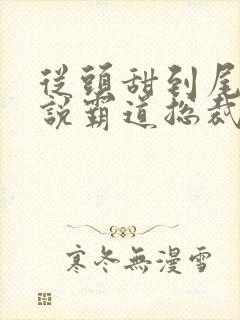 從頭甜到尾
說霸道總裁
寒冬無漫雪